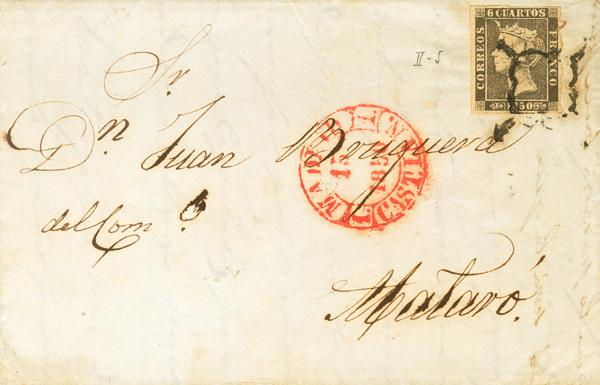 6 CUARTOS
CORREOS
FRANCO
1850
II-5
Sr
Dn Juan Bruguera
del Como
Mataró.
MADRID
CASTI
185